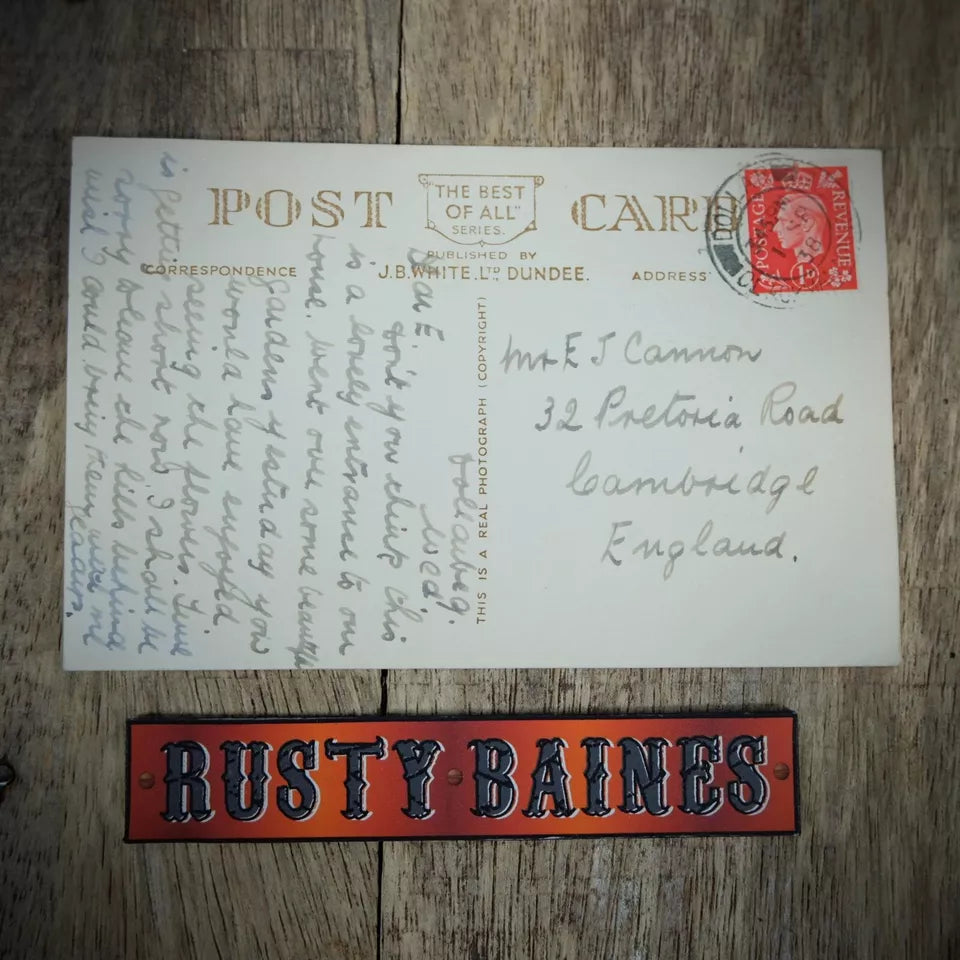 POST CARD
"THE BEST
OF ALL"
SERIES.
PUBLISHED BY
J.B.WHITE.LTD DUNDEE.
CORRESPONDENCE
ADDRESS
THIS IS A REAL PHOTOGRAPH (COPYRIGHT)
POSTAGE
REVENUE
1D
38
Dollarbeg.
Wed.
Dear E.
Don't you think this
is a lovely entrance to our
house. Went over some beautiful
Gardens yesterday you
would have enjoyed
seeing the flowers. Time
is getting short now, I shall be
sorry to leave the hills behind
wish I could bring them with me
Mr E J Cannon
32 Pretoria Road
Cambridge
England.
RUSTY BAINES